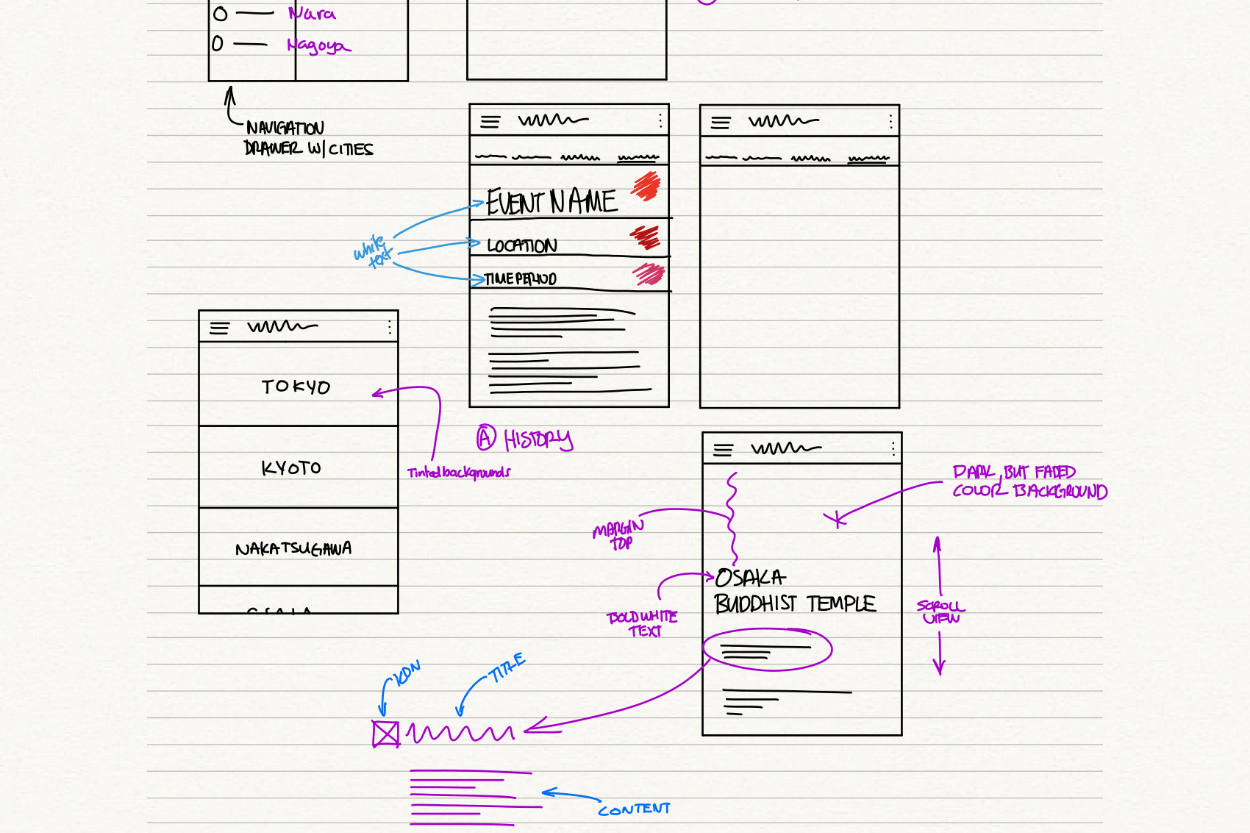 Nara
Nagoya
NAVIGATION
DRAWER W/ CITIES
EVENT NAME
LOCATION
TIME PERIOD
White
text
A HISTORY
TOKYO
KYOTO
NAKATSUGAWA
Tinted backgrounds
DARK, BUT FADED
COLOR BACKGROUND
MARGIN
TOP
OSAKA
BUDDHIST TEMPLE
BOLD WHITE
TEXT
SCROLL
VIEW
ICON
TITLE
CONTENT